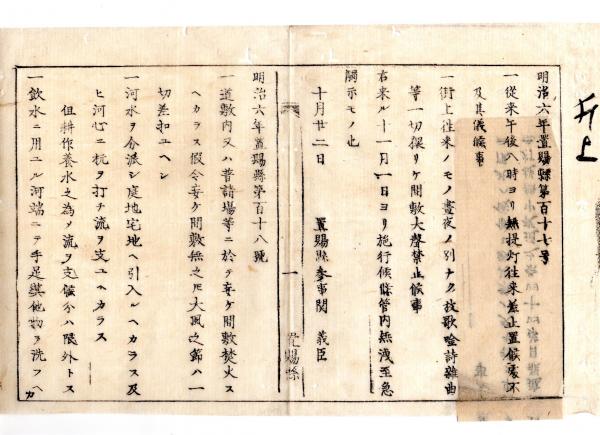 明治六年置賜縣第百十七号
一従来午後八時ヨリ無提灯往来差止置候處不
及其儀候事
一街上往来ノモノ晝夜ノ別ナク放歌唫詩雑曲
等一切猥リケ間敷大聲禁止候事
右来ル十一月一日ヨリ施行候條管内無洩至急
觸示モノ也
十月廿二日
置賜縣参事関義臣
一
置賜縣
明治六年置賜縣第百十八號
一道敷内又ハ普請場等ニ於テ妄ケ間敷焚火ス
ヘカラス假令妄ケ間敷無之トモ大風之節ハ一
切差扣エヘシ
一河水ヲ分派シ庭地宅地ヘ引入ルヘカラス及
ヒ河心ニ杭ヲ打チ流ヲ支ユヘカラス
但耕作養水之為メ流ヲ支候分ハ限外トス
一飲水ニ用ユル河端ニテ手足其他物ヲ洗フヘカ